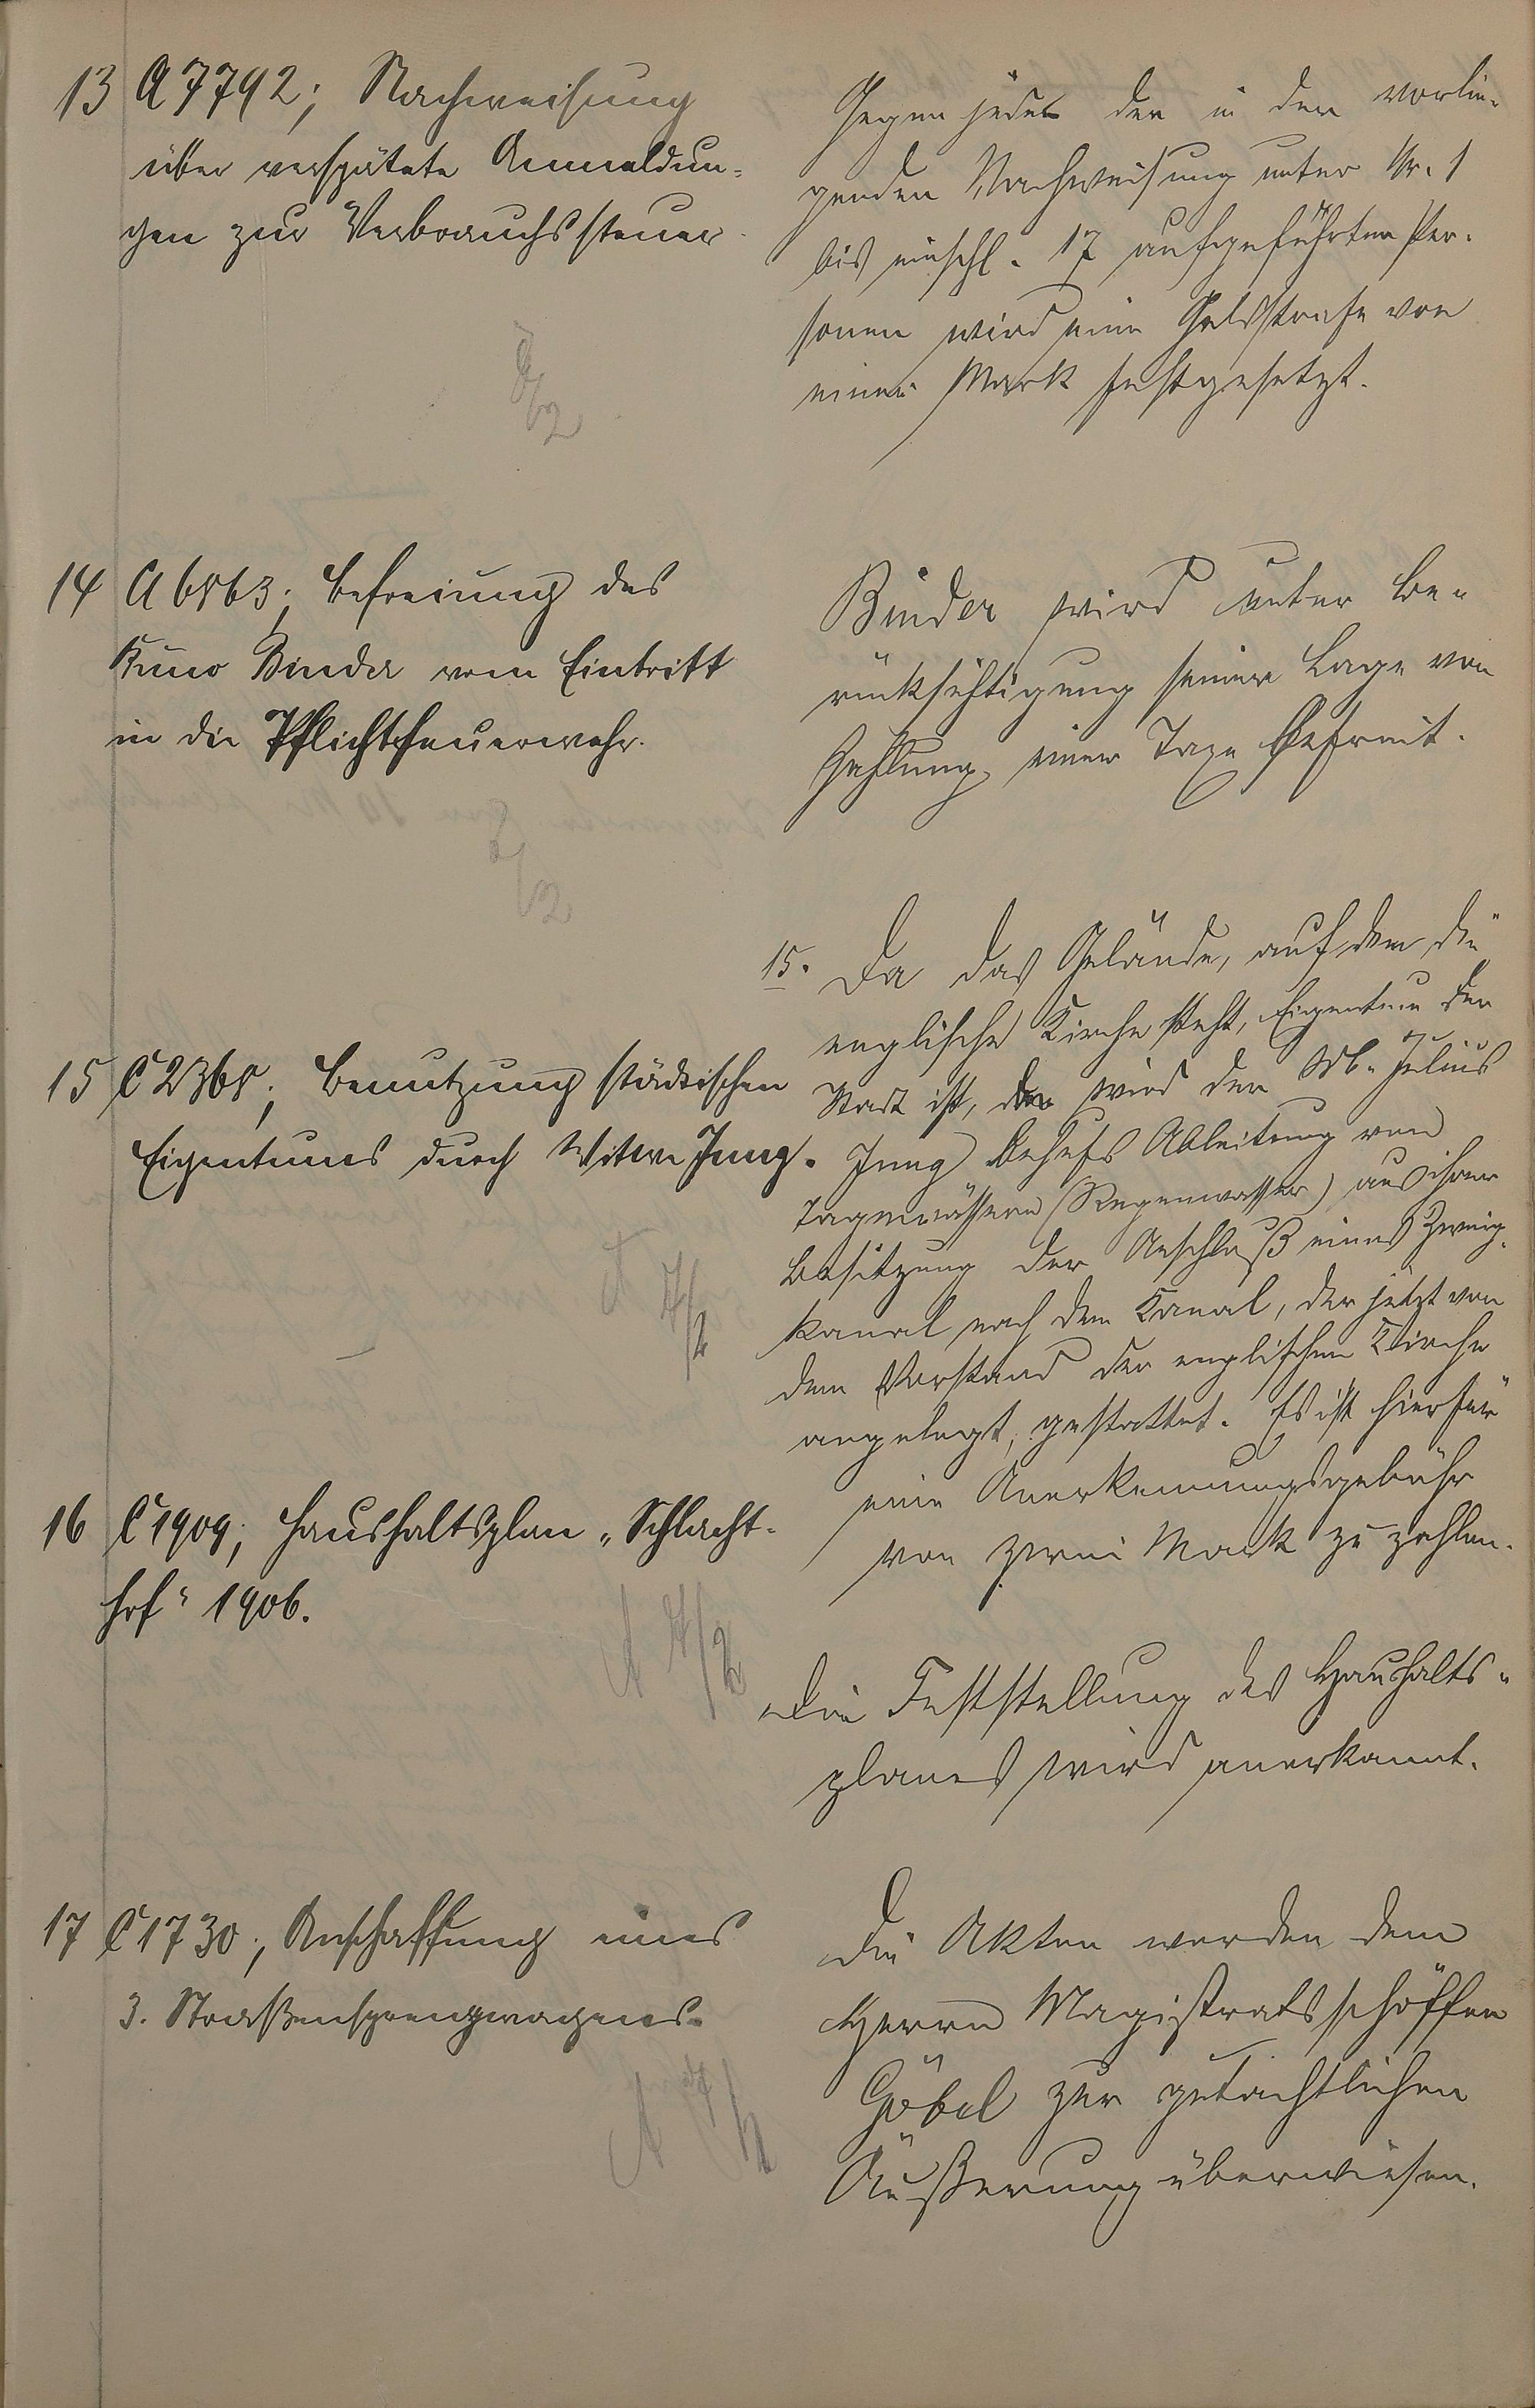 13 A 7792; Nachweisung
über verspätete Anmeldun-
gen zur Verbrauchssteuer.
Gegen jede der in der vorlie-
genden Nachweisung unter Nr. 1
bis einschl. 17 aufgeführten Per-
sonen wird eine Geldstrafe von
einer Mark festgesetzt.
14 A 6863; Befreiung des
Kuno Binder vom Eintritt
in die Pflichtfeuerwehr.
Binder wird unter Be-
rücksichtigung seiner Lage von
Zahlung einer Taxe befreit.
15 C 2368; Benutzung städtischen
Eigentums durch Witwe Jung.
15. Da das Gelände, auf dem die
englische Kirche steht, Eigentum der
Stadt ist, wird der Wb. Julius
Jung behufs Ableitung von
Tagewässern (Regenwasser) aus ihrer
Besitzung der Anschluß eines Zweig-
kanal nach dem Kanal, der jetzt von
dem Vorstand der englischen Kirche
angelegt, gestattet. Es ist hierfür
eine Anerkennungsgebühr
von zwei Mark zu zahlen.
16 C 1909; Haushaltsplan „Schlacht-
hof“ 1906.
Die Feststellung des Haushalts-
planes wird anerkannt.
17 C 1730; Anschaffung eines
3. Straßensprengwagens.
Die Akten werden dem
Herrn Magistratsschöffen
Göbel zur gutachtlichen
Äußerung überwiesen.